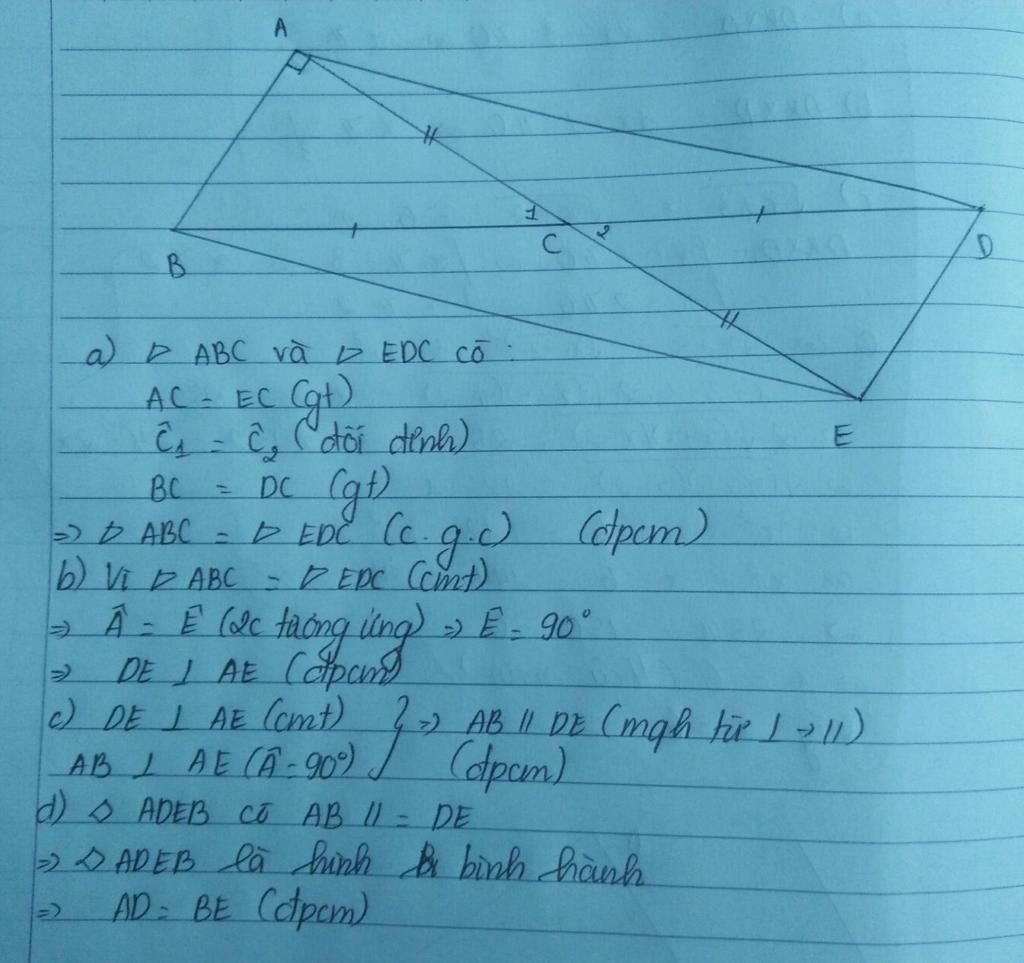 A
1
C
2
B
D
E
a) ▷ ABC và ▷ EDC có :
AC = EC (gt)
Ĉ₁ = Ĉ₂ (đối đỉnh)
BC = DC (gt)
=> ▷ ABC = ▷ EDC (c.g.c) (đpcm)
b) Vì ▷ ABC = ▷ EDC (cmt)
=> Â = Ê (2c tương ứng) => Ê = 90°
=> DE ⊥ AE (đpcm)
c) DE ⊥ AE (cmt) } => AB // DE (mqh từ ⊥ → //)
AB ⊥ AE (Â = 90°) (đpcm)
d) ◇ ADEB có AB // = DE
=> ◇ ADEB là hình bình hành
=> AD = BE (đpcm)